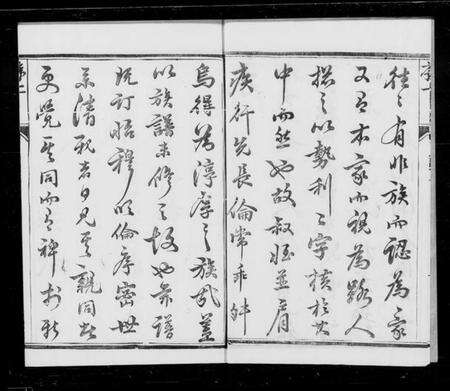 往々有非族而認為家
又有本家而視為路人
揆之以勢利二字橫於其
中而然也故叔姪並肩
疾行先長倫常乖舛
烏得為淳厚之族哉蓋
以族譜未修之故也茲譜
既訂昭穆以倫序密世
系清秩者日見其親同姓
更覺其同而有裨於